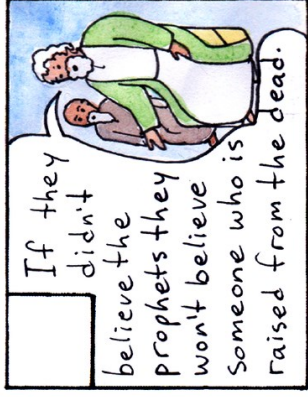 If they
didn't
believe the
prophets they
won't believe
someone who is
raised from the dead.